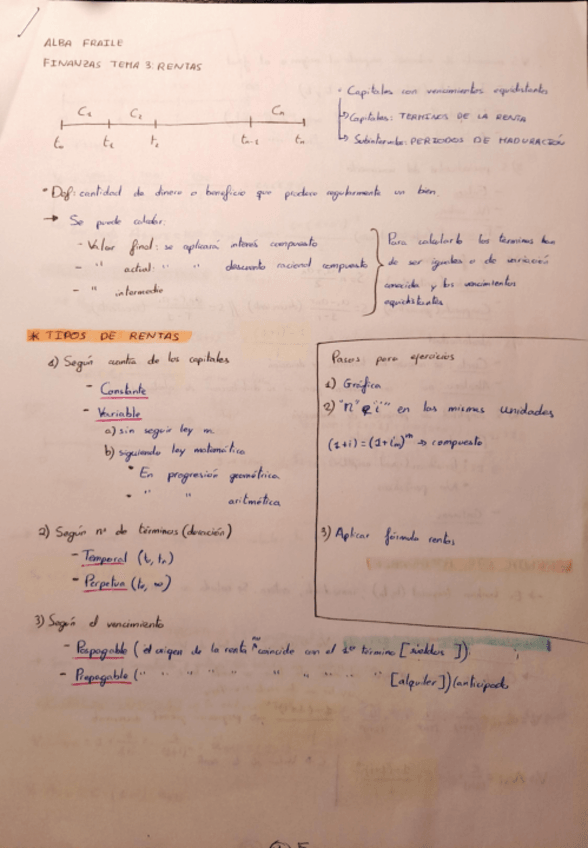 ALBA FRAILE
FINANZAS TEMA 3: RENTAS
C1 C2 Cn
to t1 t2 tn-1 tn
· Capitales con vencimientos equidistantes
↳ Capitales: TERMINOS DE LA RENTA
↳ Subintervalos: PERIODOS DE MADURACIÓN
• Def: cantidad de dinero o beneficio que produce regularmente un bien.
→ Se puede calcular:
- Valor final: se aplicará interés compuesto
- " actual: " " descuento racional compuesto
- " intermedio
Para calcularlo los términos han
de ser iguales o de variación
conocida y los vencimientos
equidistantes
* TIPOS DE RENTAS
1) Según cuantía de los capitales
- Constante
- Variable
a) sin seguir ley m.
b) siguiendo ley matemática
• En progresión geométrica
• " " aritmética
2) Según nº de términos (duración)
- Temporal (to, tn)
- Perpetua (to, ∞)
3) Según el vencimiento
- Pospagable (el origen de la renta no coincide con el 1º término [sueldos])
- Prepagable (" " " " " " " " " [alquiler]) (anticipada
Pasos para ejercicios
1) Gráfica
2) "n" e "i" en las mismas unidades
(1+i) = (1+im)^m → compuesto
3) Aplicar fórmula rentas